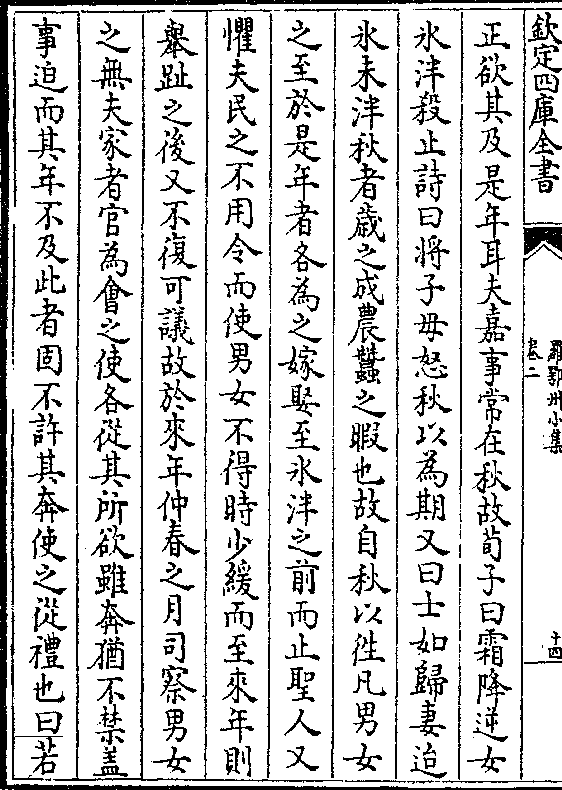 欽定四庫全書
羅鄂州小集
卷二
十四
正欲其及是年耳夫嘉事常在秋故荀子曰霜降逆女
氷泮殺止詩曰將子毋怒秋以為期又曰士如歸妻迨
氷未泮秋者歲之成農蠶之暇也故自秋以徃凡男女
之至於是年者各為之嫁娶至氷泮之前而止聖人又
懼夫民之不用令而使男女不得時少緩而至來年則
舉趾之後又不復可議故於來年仲春之月司察男女
之無夫家者官為會之使各從其所欲雖奔猶不禁盖
事迫而其年不及此者固不許其奔使之從禮也曰若